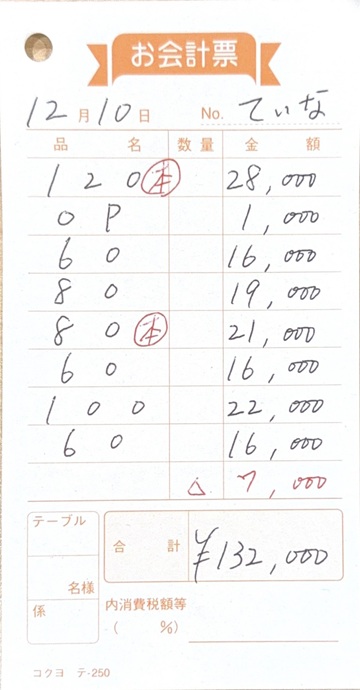 お会計票
12月10日 No. ていな
品名 数量 金額
120 本 28,000
OP 1,000
60 16,000
80 19,000
80 本 21,000
60 16,000
100 22,000
60 16,000
△ 7,000
テーブル
名様
係
合計 ¥132,000
内消費税額等
( %)
コクヨ テ-250